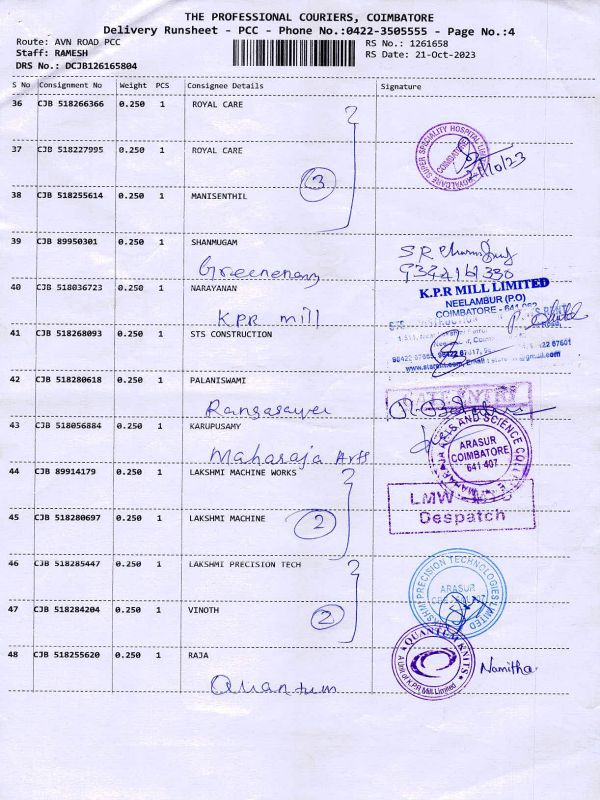 THE PROFESSIONAL COURIERS, COIMBATORE
Delivery Runsheet - PCC - Phone No.:0422-3505555 - Page No.:4
Route: AVN ROAD PCC
RS No.: 1261658
Staff: RAMESH
RS Date: 21-Oct-2023
DRS No.: DCJB126165804
S No Consignment No Weight PCS Consignee Details Signature
36 CJB 518266366 0.250 1 ROYAL CARE
37 CJB 518227995 0.250 1 ROYAL CARE
SUPER SPECIALITY HOSPITAL
COIMBATORE
21/10/23
3
38 CJB 518255614 0.250 1 MANISENTHIL
39 CJB 89950301 0.250 1 SHANMUGAM
40 CJB 518036723 0.250 1 NARAYANAN
K.P.R MILL LIMITED
NEELAMBUR (P.O)
COIMBATORE - 641 062
KPR mill
41 CJB 518268093 0.250 1 STS CONSTRUCTION
42 CJB 518280618 0.250 1 PALANISWAMI
GATE ENTRY
Rangasayee
43 CJB 518056884 0.250 1 KARUPUSAMY
ARTS AND SCIENCE COLLEGE
ARASUR
COIMBATORE
641 407
Maharaja Arts
44 CJB 89914179 0.250 1 LAKSHMI MACHINE WORKS
LMW
Despatch
45 CJB 518280697 0.250 1 LAKSHMI MACHINE
2
46 CJB 518285447 0.250 1 LAKSHMI PRECISION TECH
LAKSHMI PRECISION TECHNOLOGIES LIMITED
ARASUR
47 CJB 518284204 0.250 1 VINOTH
2
48 CJB 518255620 0.250 1 RAJA
QUANTUM KNITS
A Unit of K.P.R Mill Limited
Namitha
Quantum